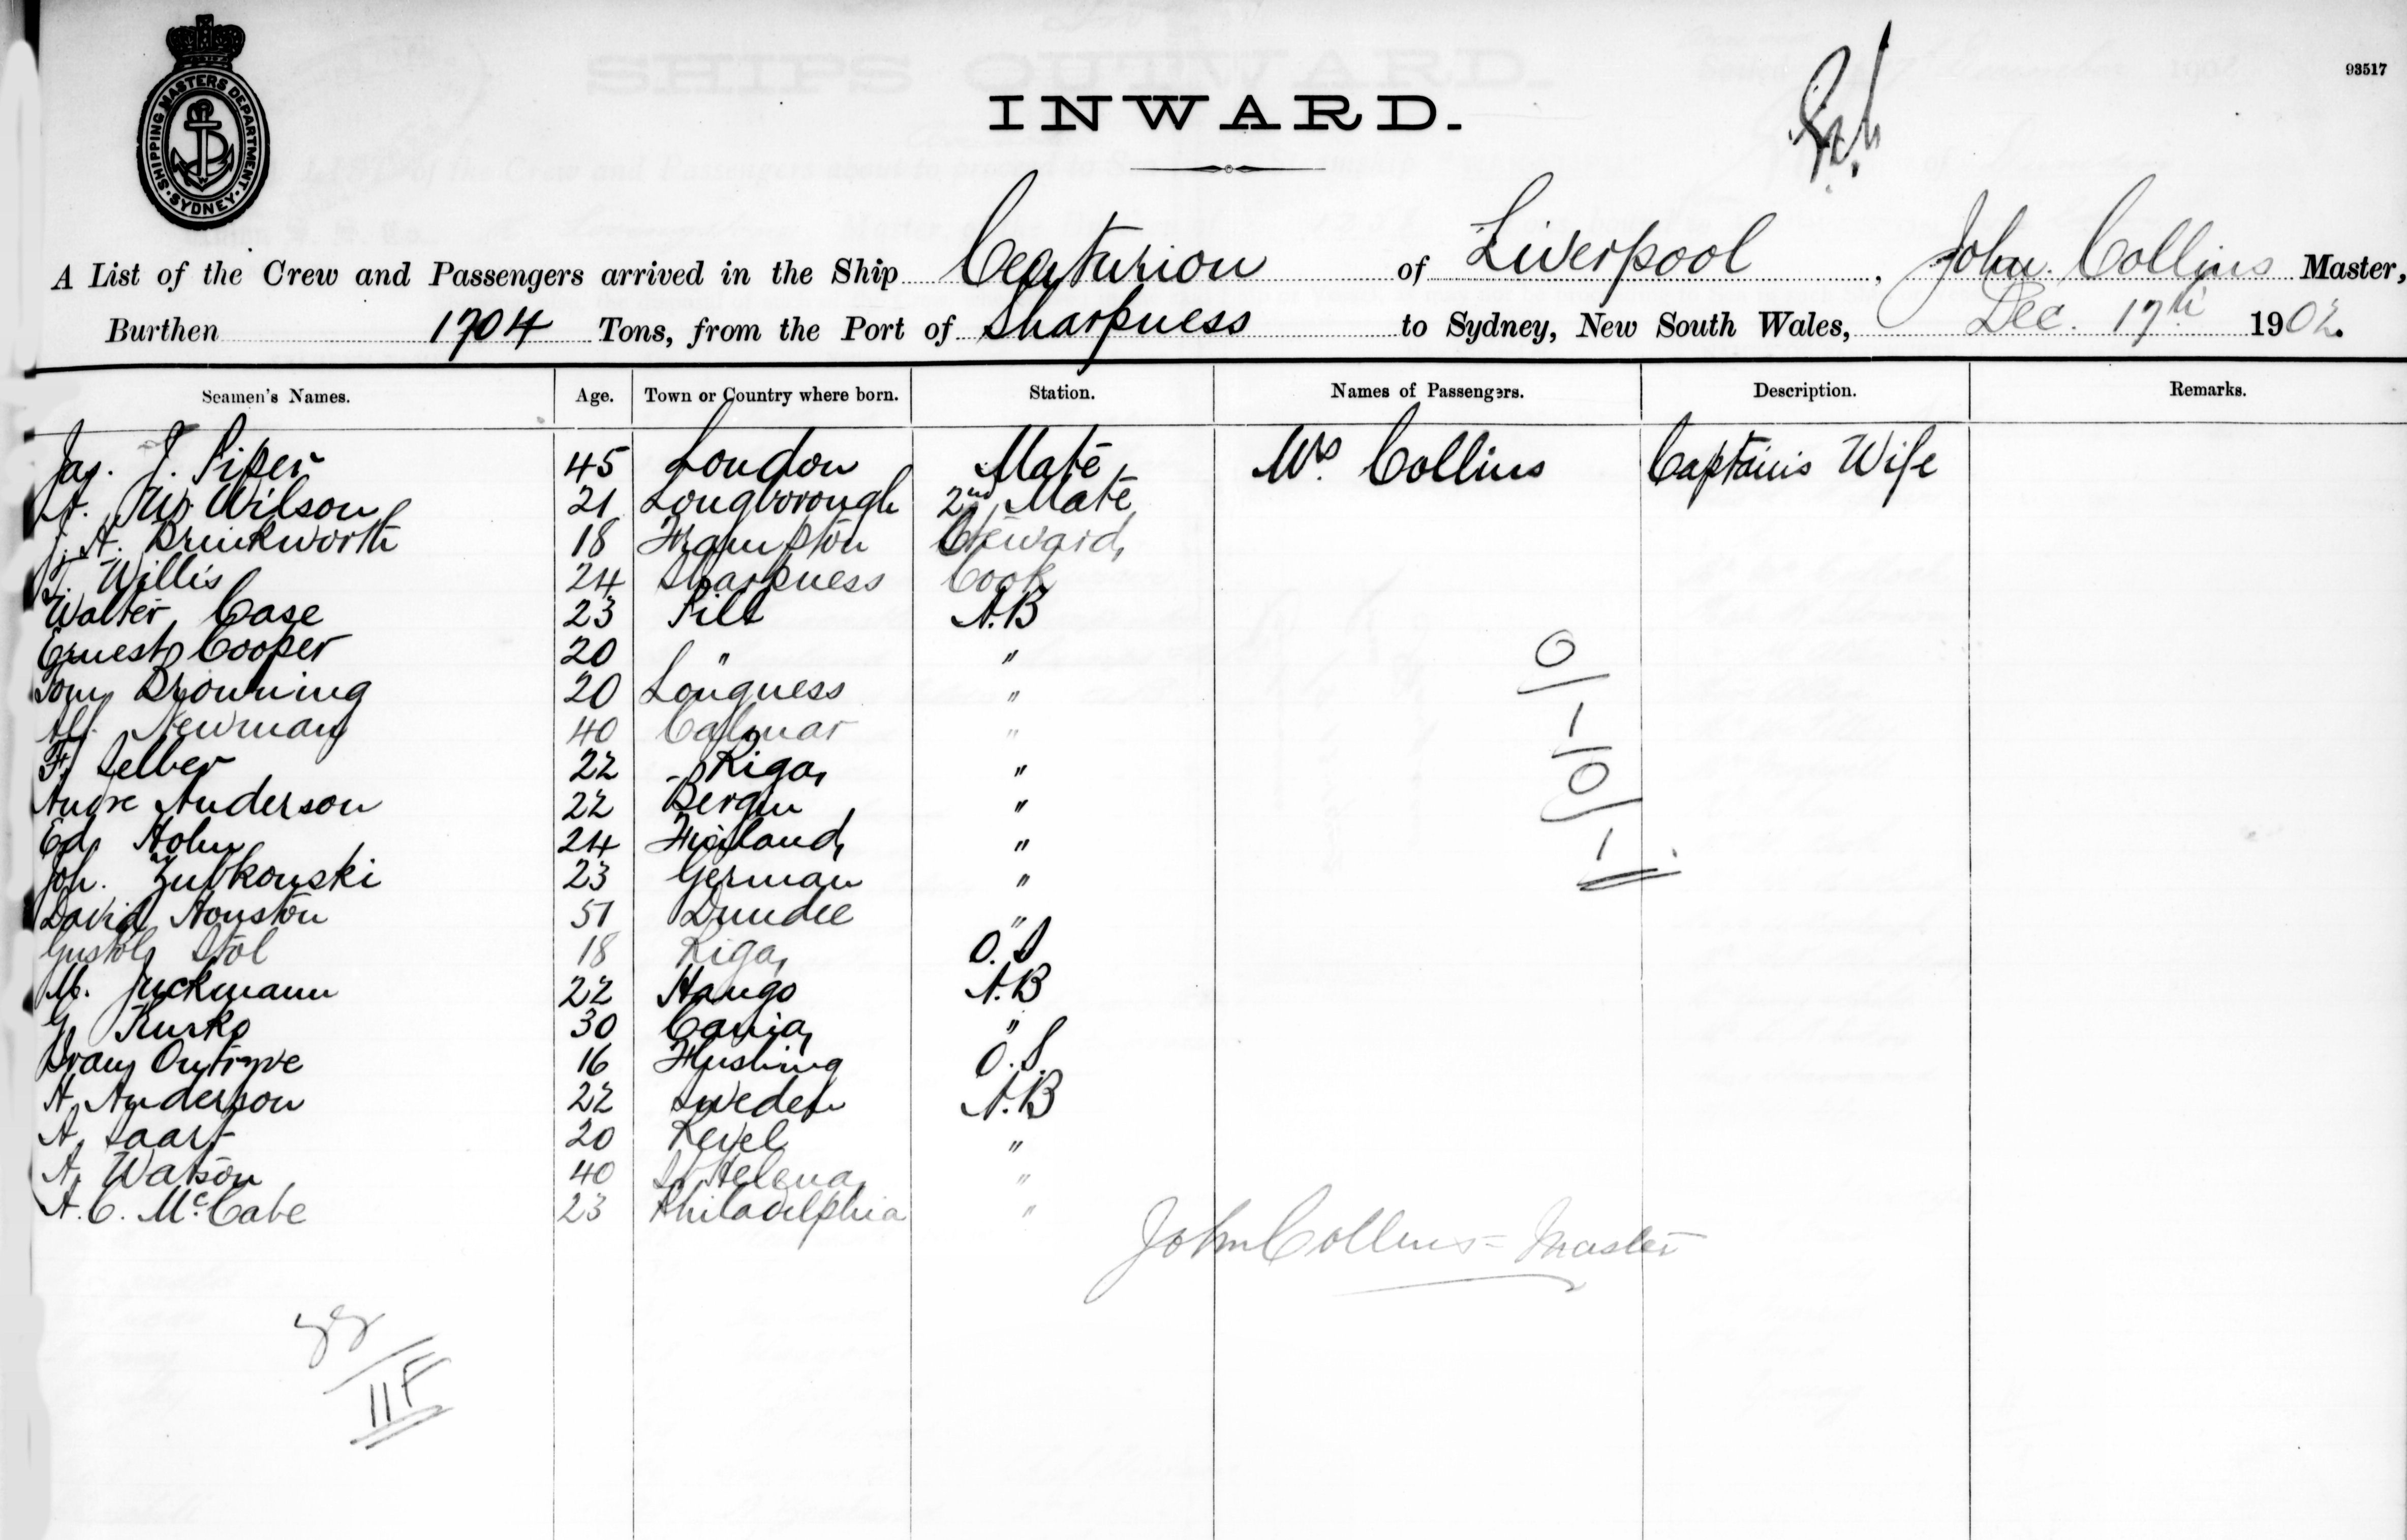 SHIPPING MASTERS DEPARTMENT. SYDNEY.
93517
INWARD.
A List of the Crew and Passengers arrived in the Ship Centurion of Liverpool, John Collins Master,
Burthen 1704 Tons, from the Port of Sharpness to Sydney, New South Wales, Dec. 17th 1902.
Seamen's Names. Age. Town or Country where born. Station. Names of Passengers. Description. Remarks.
Jas. J. Piper 45 London Mate Mrs Collins Captain's Wife
A. W. Wilson 21 Longborough 2nd Mate
J. A. Brinkworth 18 Frampton Steward
T. Willis 24 Sharpness Cook
Walter Case 23 Pill A.B
Ernest Cooper 20 " "
Tom Browning 20 Longness "
Alf. Newman 40 Calmar "
F. Selber 22 Riga "
Andre Anderson 22 Bergen "
Ed. Holm 24 Finland "
Joh. Zubkowski 23 German "
David Houston 51 Dundee "
Stol 18 Riga O.S
M. Juckmann 22 Hango A.B
G. Kusko 30 Cania "
16 Flushing O.S.
A. Anderson 22 Sweden A.B
A. Saar 20 Revel "
A. Watson 40 St Helena "
A. C. McCabe 23 Philadelphia "
John Collins = Master